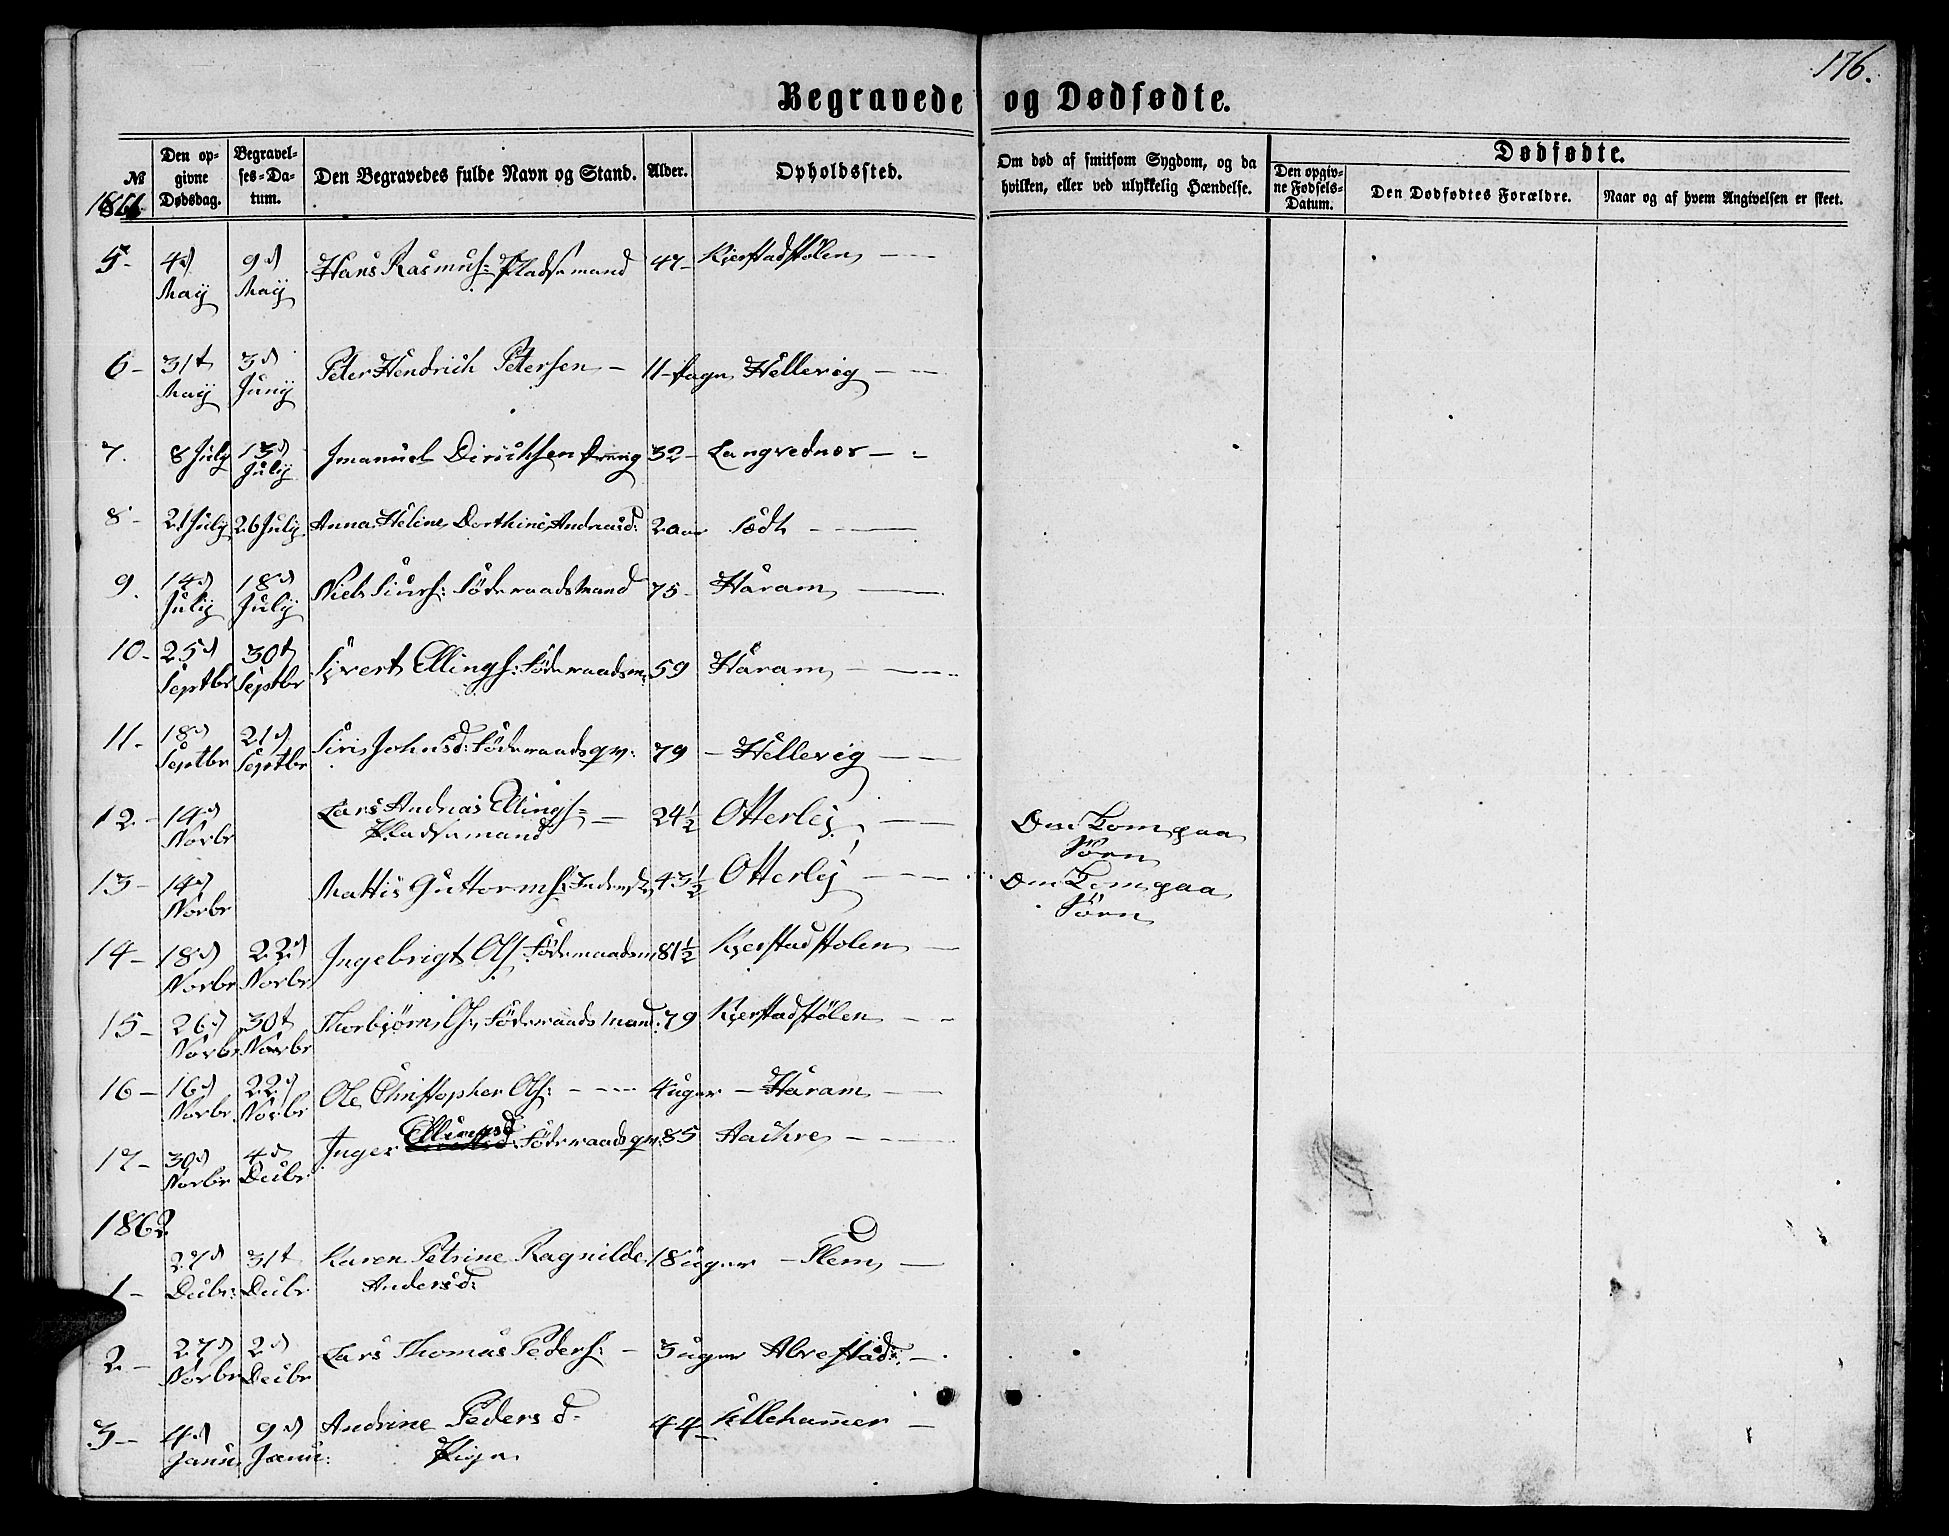 176.
Begravede og Dødfødte.
№
1861
Den opgivne Dødsdag.
Begravelses-Datum.
Den Begravedes fulde Navn og Stand.
Alder.
Opholdssted.
Om død af smitsom Sygdom, og da hvilken, eller ved ulykkelig Hændelse.
Dødfødte.
Den opgivne Fødsels-Datum.
Den Dødfødtes Forældre.
Naar og af hvem Angivelsen er skeet.
5- 4d Maij 9d Maij Hans Rasmus: Pladsemand 47- Kjerstadstølen
6- 31t Maij 3d Junij Peter Hendrich Petersen - 11 Dage Hellevig
7. 8 July 13d Julij Imanuel Dirichsen Dreng 32- Langvednes
8- 21 July 26 July Anna Heline Dorthine Andreasd: 2 aar
9. 14d Julij 18d Julij Niels Siurs: Föderaadsmand 75- Haram
10- 25d Septbr 30t Septbr Sivert Ellings: Föderaadsm: 59 Haram
11- 18d Septbr 21d Septbr Siri Johnsd: Föderaadsqv: 79 - Hellevig
12- 14d Novbr Lars Andreas Ellings= Pladsemand 24½ Otterlej Omkom paa Söen
13- 14d Novbr Mattis Guttorms: 43½ Otterlej Omkom paa Söen
14- 18d Novbr 22d Novbr Ingebrigt Ols: Föderaadsm 81½ Kjerstadstolen
15- 26d Novbr 30t Novbr Thorbjörn Ols: Föderaadsmand: 79 Kjerstadstølen
16- 16d Novbr 22d Novbr Ole Christopher Ols: 4 uger - Haram
17- 30d Novbr 4d Decbr Inger Ellingsd: Föderaadsqv: 85 Aakre
1862
1- 27d Decbr: 31t Decbr Karen Petrine Ragnilde Andersd: 18 uger - Flem
2- 27d Novbr 2d Decbr Lars Thomas Peders: - 3 uger Alvestad
3- 4d Janu: 9d Janu: Andrine Pedersd: Pige 44- Ullahamer